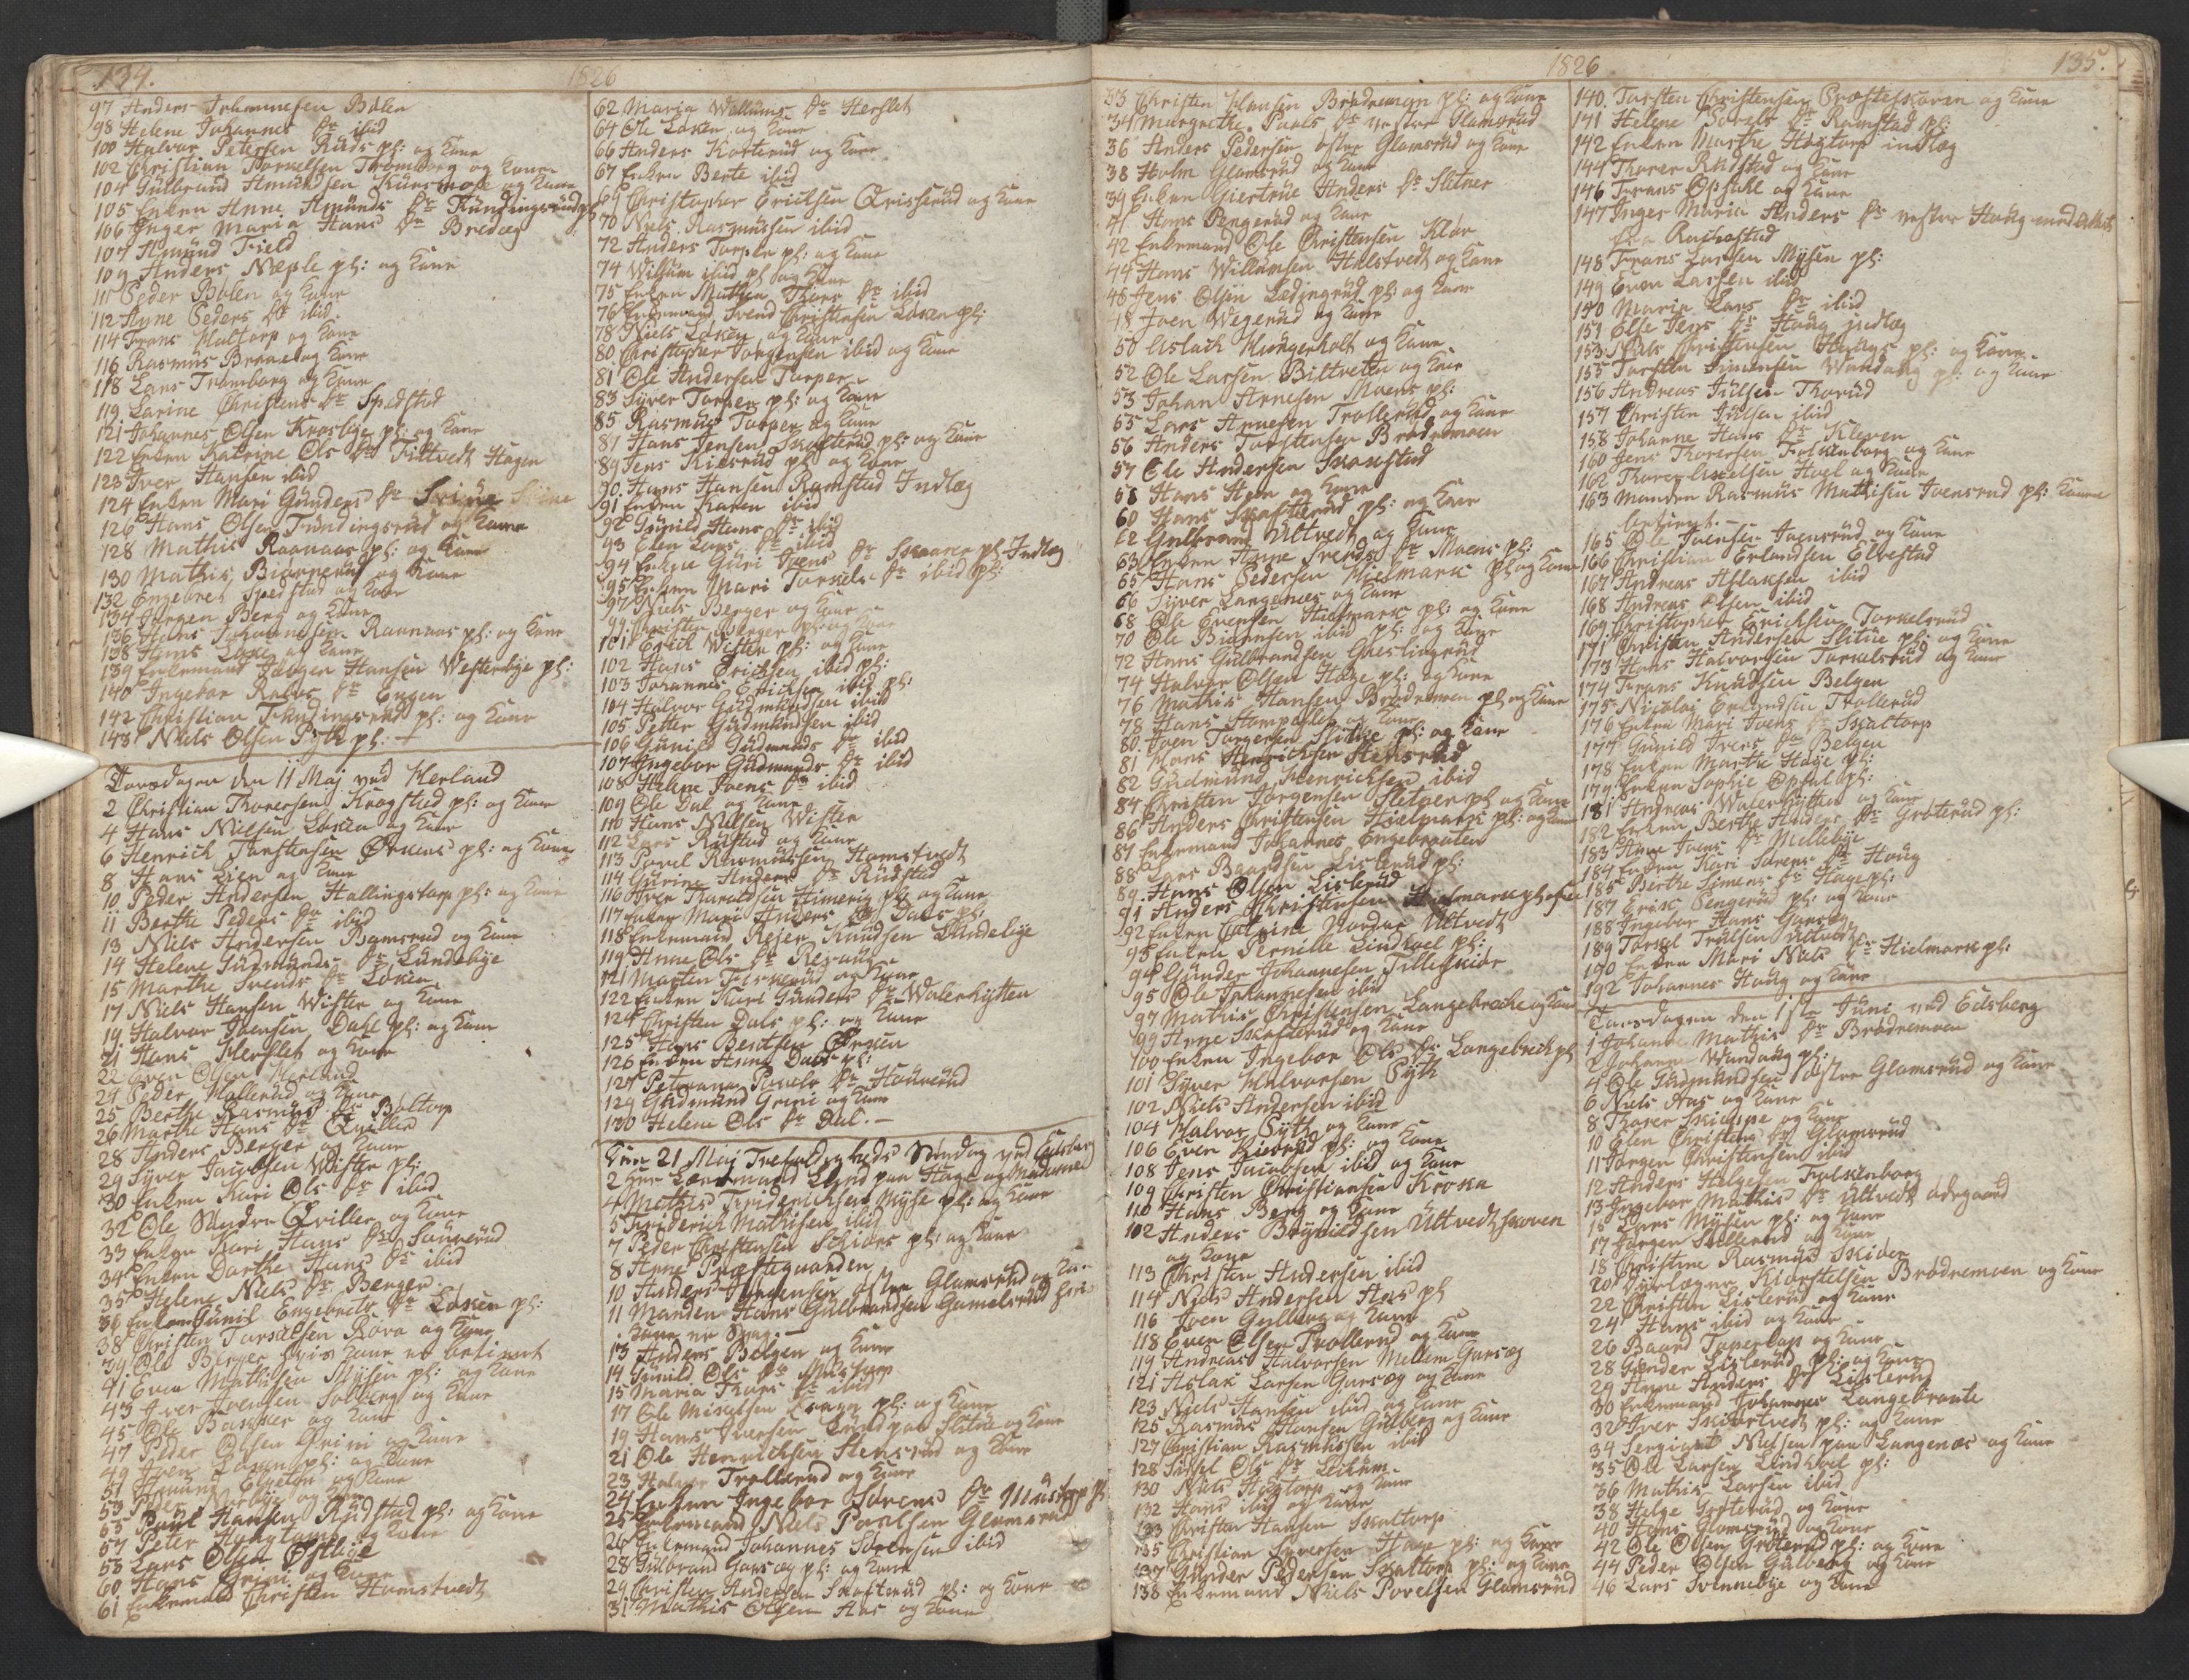 134.
1826
97 Anders Johannesen Bølen
98 Helene Johannes Dr ibid
100 Halvor Petersen Ruds pl: og Kone
102 Christian Torkelsen Tromborg og Kone
104 Gulbrand Amundsen og Kone
105 Enken Anne Amunds Dr
106 Inger Maria Hans Dr Bredeg
107 Amund Field
109 Anders Næple pl: og Kone
111 Peder Bølen og Kone
112 Anne Peders Dr ibid
114 Frans Haltorp og Kone
116 Rasmus og Kone
118 Lars Tromborg og Kone
119 Larine Christens Dr Spedstad
121 Johannes Olsen Krosbye pl: og Kone
122 Enken Katrine Ols Dr Tiltvedt Hagen
123 Iver Hansen ibid
124 Enken Mari Gunders Dr
126 Hans Olsen og Kone
128 Mathis Raanaas pl: og Kone
130 Mathis Biørnerud og Kone
132 Engebret Spedstad og Kone
134 Jørgen Berg og Kone
136 Hans Johannesen Raanaas pl: og Kone
138 Hans og Kone
139 Enkemand Jørgen Hansen Westerbye pl:
140 Ingebor Dr Engen
142 Christian pl: og Kone
143 Niels Olsen Pyth pl: –
Torsdagen den 11 Maj ved Herland
2 Christian Thorersen Krogstad pl: og Kone
4 Hans Nielsen Løken og Kone
6 Henrich Torstensen Ørkens pl: og Kone
8 Hans Lien og Kone
10 Peder Andersen Hallingstorp pl: og Kone
11 Berthe Peders Dr ibid
13 Niels Andersen Bamsrud og Kone
14 Helene Gudmunds Dr Lundebye
15 Marthe Svends Dr Løken
17 Niels Hansen Wister og Kone
19 Halvor Joensen Dahl pl: og Kone
21 Hans Herslet og Kone
22 Even Olsen Herland
24 Peder Møllerud og Kone
25 Berthe Rasmus Dr Boltorp
26 Marthe Hans Dr Qviller
28 Anders Berger og Kone
29 Syver Jacobsen Wister pl:
30 Enken Kari Ols Dr ibid
32 Ole Søndre Qviller og Kone
33 Enken Kari Hans Dr
34 Enken Dorthe Hans Dr ibid
35 Helene Niels Dr Berger
36 Enken Gunil Engebrets Dr Løken pl:
38 Christen Torkelsen Røra og Kone
39 Ole Berger hvis Kone er betient
41 Even Mathisen Mysen pl: og Kone
43 Iver Joensen Solberg og Kone
45 Ole Bakker og Kone
47 Peder Olsen Grini og Kone
49 Iver Løken pl: og Kone
51 Amund og Kone
53 Peder og Kone
55 Poul Hansen Rudstad pl: og Kone
57 Peter og Kone
58 Lars Olsen Østbye
60 Hans Grini og Kone
61 Enkemand Christen Hamstvedt
62 Maria Willums Dr Herslet
64 Ole Løken og Kone
66 Anders Korterud og Kone
67 Enken Berte ibid
69 Christopher Ericksen Qvisserud og Kone
70 Niels Rasmussen ibid
72 Anders Torper pl: og Kone
74 Willum ibid pl og Kone
75 Enken Mathea Thors Dr ibid
76 Enkemand Svend Christensen Løken pl:
78 Niels Løken og Kone
80 Christopher Jørgensen ibid og Kone
81 Ole Andersen Torper
83 Syver Torper pl: og Kone
85 Rasmus Torper og Kone
87 Hans Jensen Skofterud pl: og Kone
89 Jens Kiesrud pl og Kone
90. Hans Hansen Ramstad Indlæg
91 Enken Karen ibid
92 Gunild Hans Dr ibid
93 Elen Lars Dr ibid
94 Enken Guri Joens Dr Skaarer pl: Indlæg
95 Enken Mari Torkels Dr ibid pl:
97 Niels Berger og Kone
99 Christen Berger pl: og Kone
101 Erich Wister pl: og Kone
102 Hans Ericksen ibid pl:
103 Johannes Ericksen ibid pl:
104 Halvor Gudmundsen ibid
105 Petter Gudmundsen ibid
106 Gunild Gudmunds Dr ibid
107 Ingebor Gudmunds Dr ibid
108 Helene Joens Dr ibid
109 Ole Dal og Kone
110 Hans Nielsen Wister
112 Lars Rustad og Kone
113 Povel Rasmussen Hamstvedt
114 Gurine Anders Dr Rudstad
116 Iver Haraldsen Himerig pl: og Kone
117 Enken Mari Anders Dr Dals pl:
118 Enkemand Rejer Knudsen Lundebye
119 Anne Ols Dr
121 Morten og Kone
122 Enken Kari Gunders Dr Walerhytten
124 Christen Dals pl: og Kone
125 Hans Bentsen Ørken
126 Enken Anne Dals pl:
127 Petronna Povels Dr
129 Gudmund Grini og Kone
130 Helene Ols Dr Dal. –
Den 21 Maj Trefoldigheds Søndag ved Eidsberg
2 Herr Lensmand Lund paa Hage og Madamme
4 Mathis Friderichsen Myse pl: og Kone
5 Friderich Mathisen ibid
7 Peder Christensen Schiørs pl: og Kone
8 Anne Præstegaarden
10 Anders Jørgensen østre Glamsrud og Kone
11 Manden Hans Gulbrandsen Gamelsrud hvis
Kone er Syag. –
13 Anders Belgen og Kone
14 Gunild Ols Dr Mustorp
15 Maria Thors Dr ibid
17 Ole Mikelsen pl: og Kone
19 Hans Iversen Lund paa Slitu og Kone
21 Ole Henrichsen Stensrud og Kone
23 Halvor Trollerud og Kone
24 Enken Ingebor Sørens Dr Mustorp pl
25 Enkemand Niels Poulsen Glamsrud
26 Enkemand Johannes Sørensen ibid
28 Gulbrand Garseg pl: og Kone
29 Christen Andersen Skofterud pl: og Kone
31 Mathis Olsen Aas og Kone
1826
135.
33 Christen Hansen Brødremoen pl: og Kone
34 Margrethe Povels Dr vestre Glamsrud
36 Anders Pedersen østre Glamsrud og Kone
38 Holm Glamsrud og Kone
39 Enken Giertrue Anders Dr Sletner
41 Hans Pengerud og Kone
42 Enkemand Ole Christensen Kløv
44 Hans Willumsen Hulstvedt og Kone
46 Jens Olsen Ledingrud pl: og Kone
48 Joen Wegerud og Kone
50 Aslach Hungerholt og Kone
52 Ole Larsen Biltveten og Kone
53 Johan Arnesen Moens pl:
55 Lars Arnesen Trollerud og Kone
56 Anders Torstensen Brødremoen
57 Ole Andersen Skakstad
58 Hans Hem og Kone
60 Hans Skofterud pl: og Kone
62 Gulbrand Ultvedt og Kone
63 Enken Anne Svends Dr Moens pl:
65 Hans Pedersen Hielmark pl: og Kone
66 Syver Langenes og Kone
68 Ole Evensen Hielmark pl: og Kone
70 Ole Biørnsen ibid pl: og Kone
72 Hans Gulbrandsen Gieslingrud
74 Halvor Olsen Hage pl: og Kone
76 Mathis Hansen Brødremoen pl: og Kone
78 Hans og Kone
80. Joen Torgersen Slitue pl: og Kone
81 Hans Henrichsen Stensrud
82 Gudmund Henrichsen ibid
84 Christen Jørgensen Sletner pl og Kone
86 Anders Christensen Hielmark pl: og Kone
87 Enkemand Johannes Engebraaten
88 Lars Baardsen Lislerud pl:
89. Hans Olsen Lislerud
91 Anders Christensen Hielmark pl: og
92 Enken Cathrine Ultvedt
93 Enken Pernille Lindhoel pl:
94 Gunder Johannesen Tillefskiør
95 Ole Johannesen ibid
97 Mathis Christensen Langebreche og Kone
99 Arne Skofterud og Kone
100 Enken Ingebor Ols Dr Langebrech pl
101 Syver Halvorsen Pyth
102 Niels Andersen ibid
104 Halvor Pyth og Kone
106 Even Kiosrud pl: og Kone
108 Jens Jacobsen ibid og Kone
109 Christen Christiansen Kroka
110 Hans Berg og Kone
102 Anders Brynildsen Ultvedtskoven
og Kone
113 Christen Andersen ibid
114 Niels Andersen Aas pl
116 Joen Gulberg og Kone
118 Even Olsen Trollerud og Kone
119 Andreas Halvorsen Mellem Garseg
121 Aslak Larsen Garseg og Kone
123 Niels Hansen ibid og Kone
125 Rasmus Hansen Gulberg og Kone
127 Christian Rasmussen ibid
128 Sidsel Ols Dr Leikum
130 Niels Hegtorp og Kone
132 Hans ibid og Kone
133 Christen Hansen Skaltorp
135 Christian Syversen Hage pl: og Kone
137 Gunder Pedersen Skaltorp pl: og Kone
138 Enkemand Niels Povelsen Glamsrud
140. Torsten Christensen Præsteskoven og Kone
141 Helene Povels Dr Ramstad pl:
142 Enken Marthe Høgtorp indlæg
144 Thorer Rudstad og Kone
146 Frans Opsahl og Kone
147 Inger Maria Anders Dr vestre Haug med Attest
fra Rakkestad
148 Frans Larsen Mysen pl:
149 Even Larsen ibid
150 Maria Lars Dr ibid
151 Else Jens Dr Haug indlæg
153 Niels Christensen Haugs pl: og Kone
155 Torsten Simensen Wandaug pl: og Kone
156 Andreas Juelsen Thorud
157 Christen Juelsen ibid
158 Johanne Hans Dr Kleven
160 Jens Thorersen Falkenborg og Kone
162 Thorer Axelsen Hoel og Kone
163 Manden Rasmus Mathisen Joensrud pl: Konen
betient. –
165 Ole Joensen Joensrud og Kone
166 Christian Erlandsen Elvestad
167 Andreas Aslaksen ibid
168 Andreas Olsen ibid
169 Christopher Ericksen Torkelsrud
171 Christen Andersen Slitue pl: og Kone
173 Hans Halvorsen Torkelsrud og Kone
174 Frans Knudsen Belgen
175 Nicolai Erlandsen Trollerud
176 Enken Mari Joens Dr Skaltorp
177 Gunild Ivers Dr Belgen
178 Enken Marthe Hage pl:
179 Enken Sophie Opsal pl:
181 Andreas Walerhytten og Kone
182 Enken Berthe Anders Dr Groterud pl:
183 Anne Joens Dr Millebye
184 Enken Kari Sørens Dr Haug
185 Berthe Simens Dr Hage pl:
187 Erik Pengerud pl: og Kone
188 Ingebor Hans Garseg
189 Torkel Trulsen Ultvedt
190 Enken Mari Niels Dr Hielmark pl:
192 Johannes Haug og Kone
Torsdagen den 1ste Juni ved Eidsberg
1 Johanne Mathis Dr Brødremoen
2 Johanne Wandaug pl:
4 Ole Gudmundsen østre Glamsrud og Kone
6 Niels Aas og Kone
8 Thorer og Kone
10 Elen Christens Dr Glamsrud
11 Jørgen Christensen ibid
12 Anders Helgesen Falkenborg
13 Ingebor Mathis Dr Ultvedt ødegaard
15 Lars Mysen pl: og Kone
17 Jørgen og Kone
18 Christine Rasmus Skiør
20 Dyrlæge Kierstelsen Brødremoen og Kone
22 Christen Lislerud og Kone
24 Hans ibid og Kone
26 Baard og Kone
28 Gunder Lislerud pl: og Kone
29 Anne Anders Dr Lislerud
30 Enkemand Johannes Langebraate
32 Iver Skiørtvedt pl: og Kone
34 Sergiant Nielsen paa Langenes og Kone
35 Ole Larsen Lindhoel pl:
36 Mathis Larsen ibid
38 Helge Groterud og Kone
40 Hans Glomsrud og Kone
42 Ole Olsen Groterud pl: og Kone
44 Peder Olsen Gulberg og Kone
46 Lars Svennebye og Kone